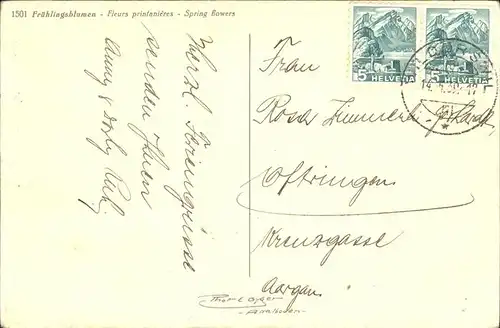 1501 Frühlingsblumen - Fleurs printanières - Spring flowers
Herzl. Feriengrüsse
senden Ihnen
Anny & Dorly
5 HELVETIA
5 HELVETIA
Frau
Rosa Zimmerli
Oftringen
Kreuzgasse
Aargau
- Adelboden -